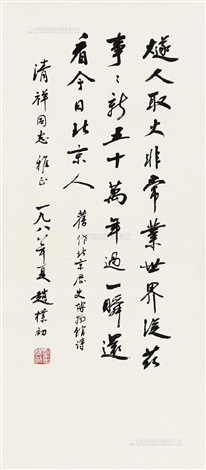 燧人取火非常業世界從茲
事〻新五十萬年過一瞬還
看今日北京人
舊作北京歷史博物館詩
清祥同志雅正
一九八八年夏趙樸初